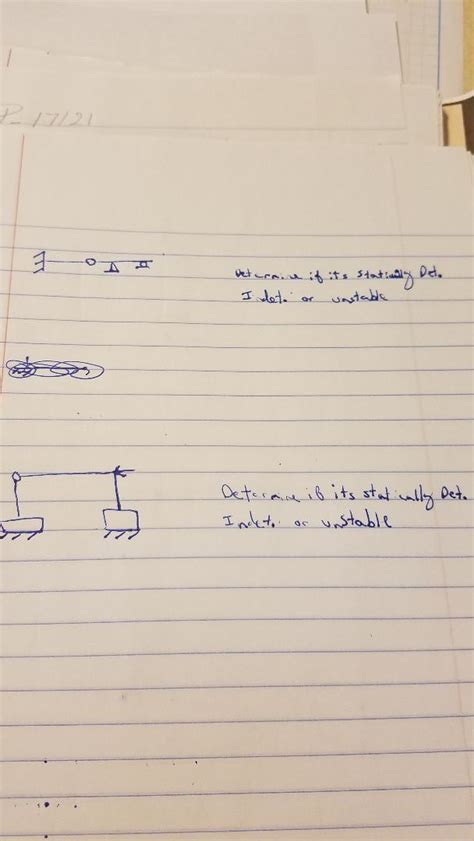 P-17/21
Determine if its statically Det.
Indet. or unstable
Determine if its statically Det.
Indet. or unstable